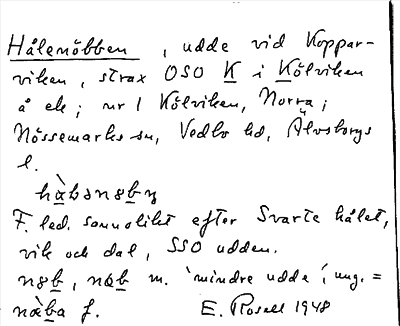 Hålenöbben, udde vid Koppar-
viken, strax OSO K i Kölviken
å ek; nr 1 Kölviken, Norra;
Nössemarks sn, Vedbo hd, Älvsborgs
l.
F. led. sannolikt efter Svarte hålet,
vik och dal, SSO udden.
nɞb, nɑb m. 'mindre udde', ung. =
nàba f. E. Rosell 1948